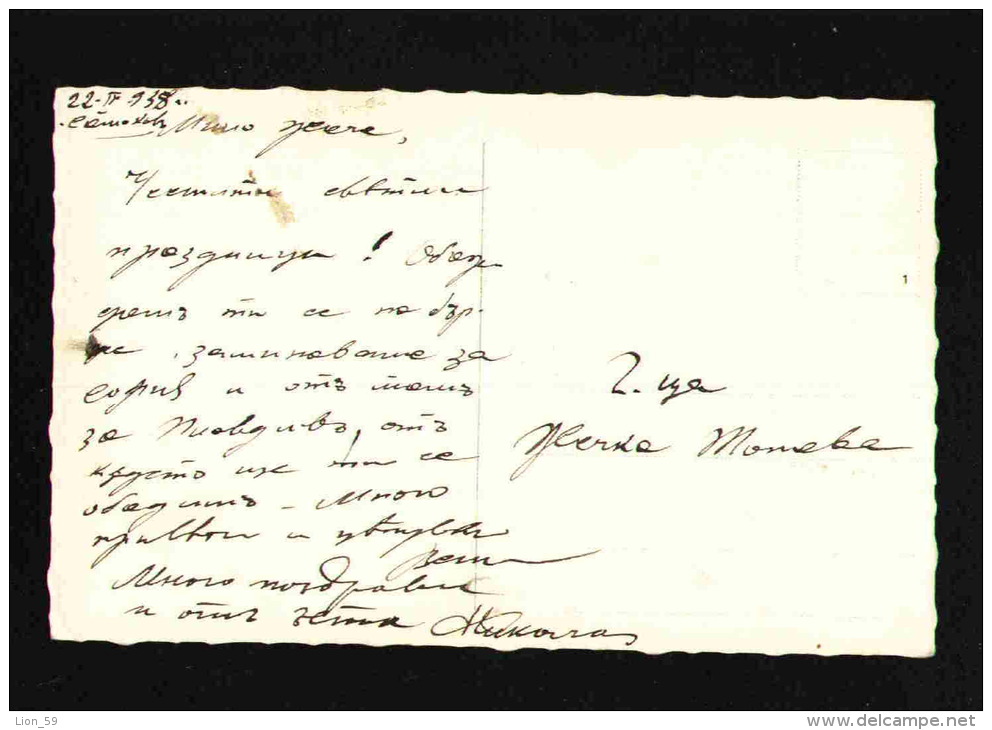 22-IV-938 г.
Самоковъ
Мило Жече,
Честити светли
празници! Обаж
дамъ ти се на бър-
же, заминаваме за
София и отъ тамъ
за Пловдивъ, отъ
където ще ти се
обадимъ - Много
приветъ и целувки
Вени
Много поздрави
и отъ зетя Никола
Г-ца
Жечка Тотева
1
Lion_59
www.delcampe.net